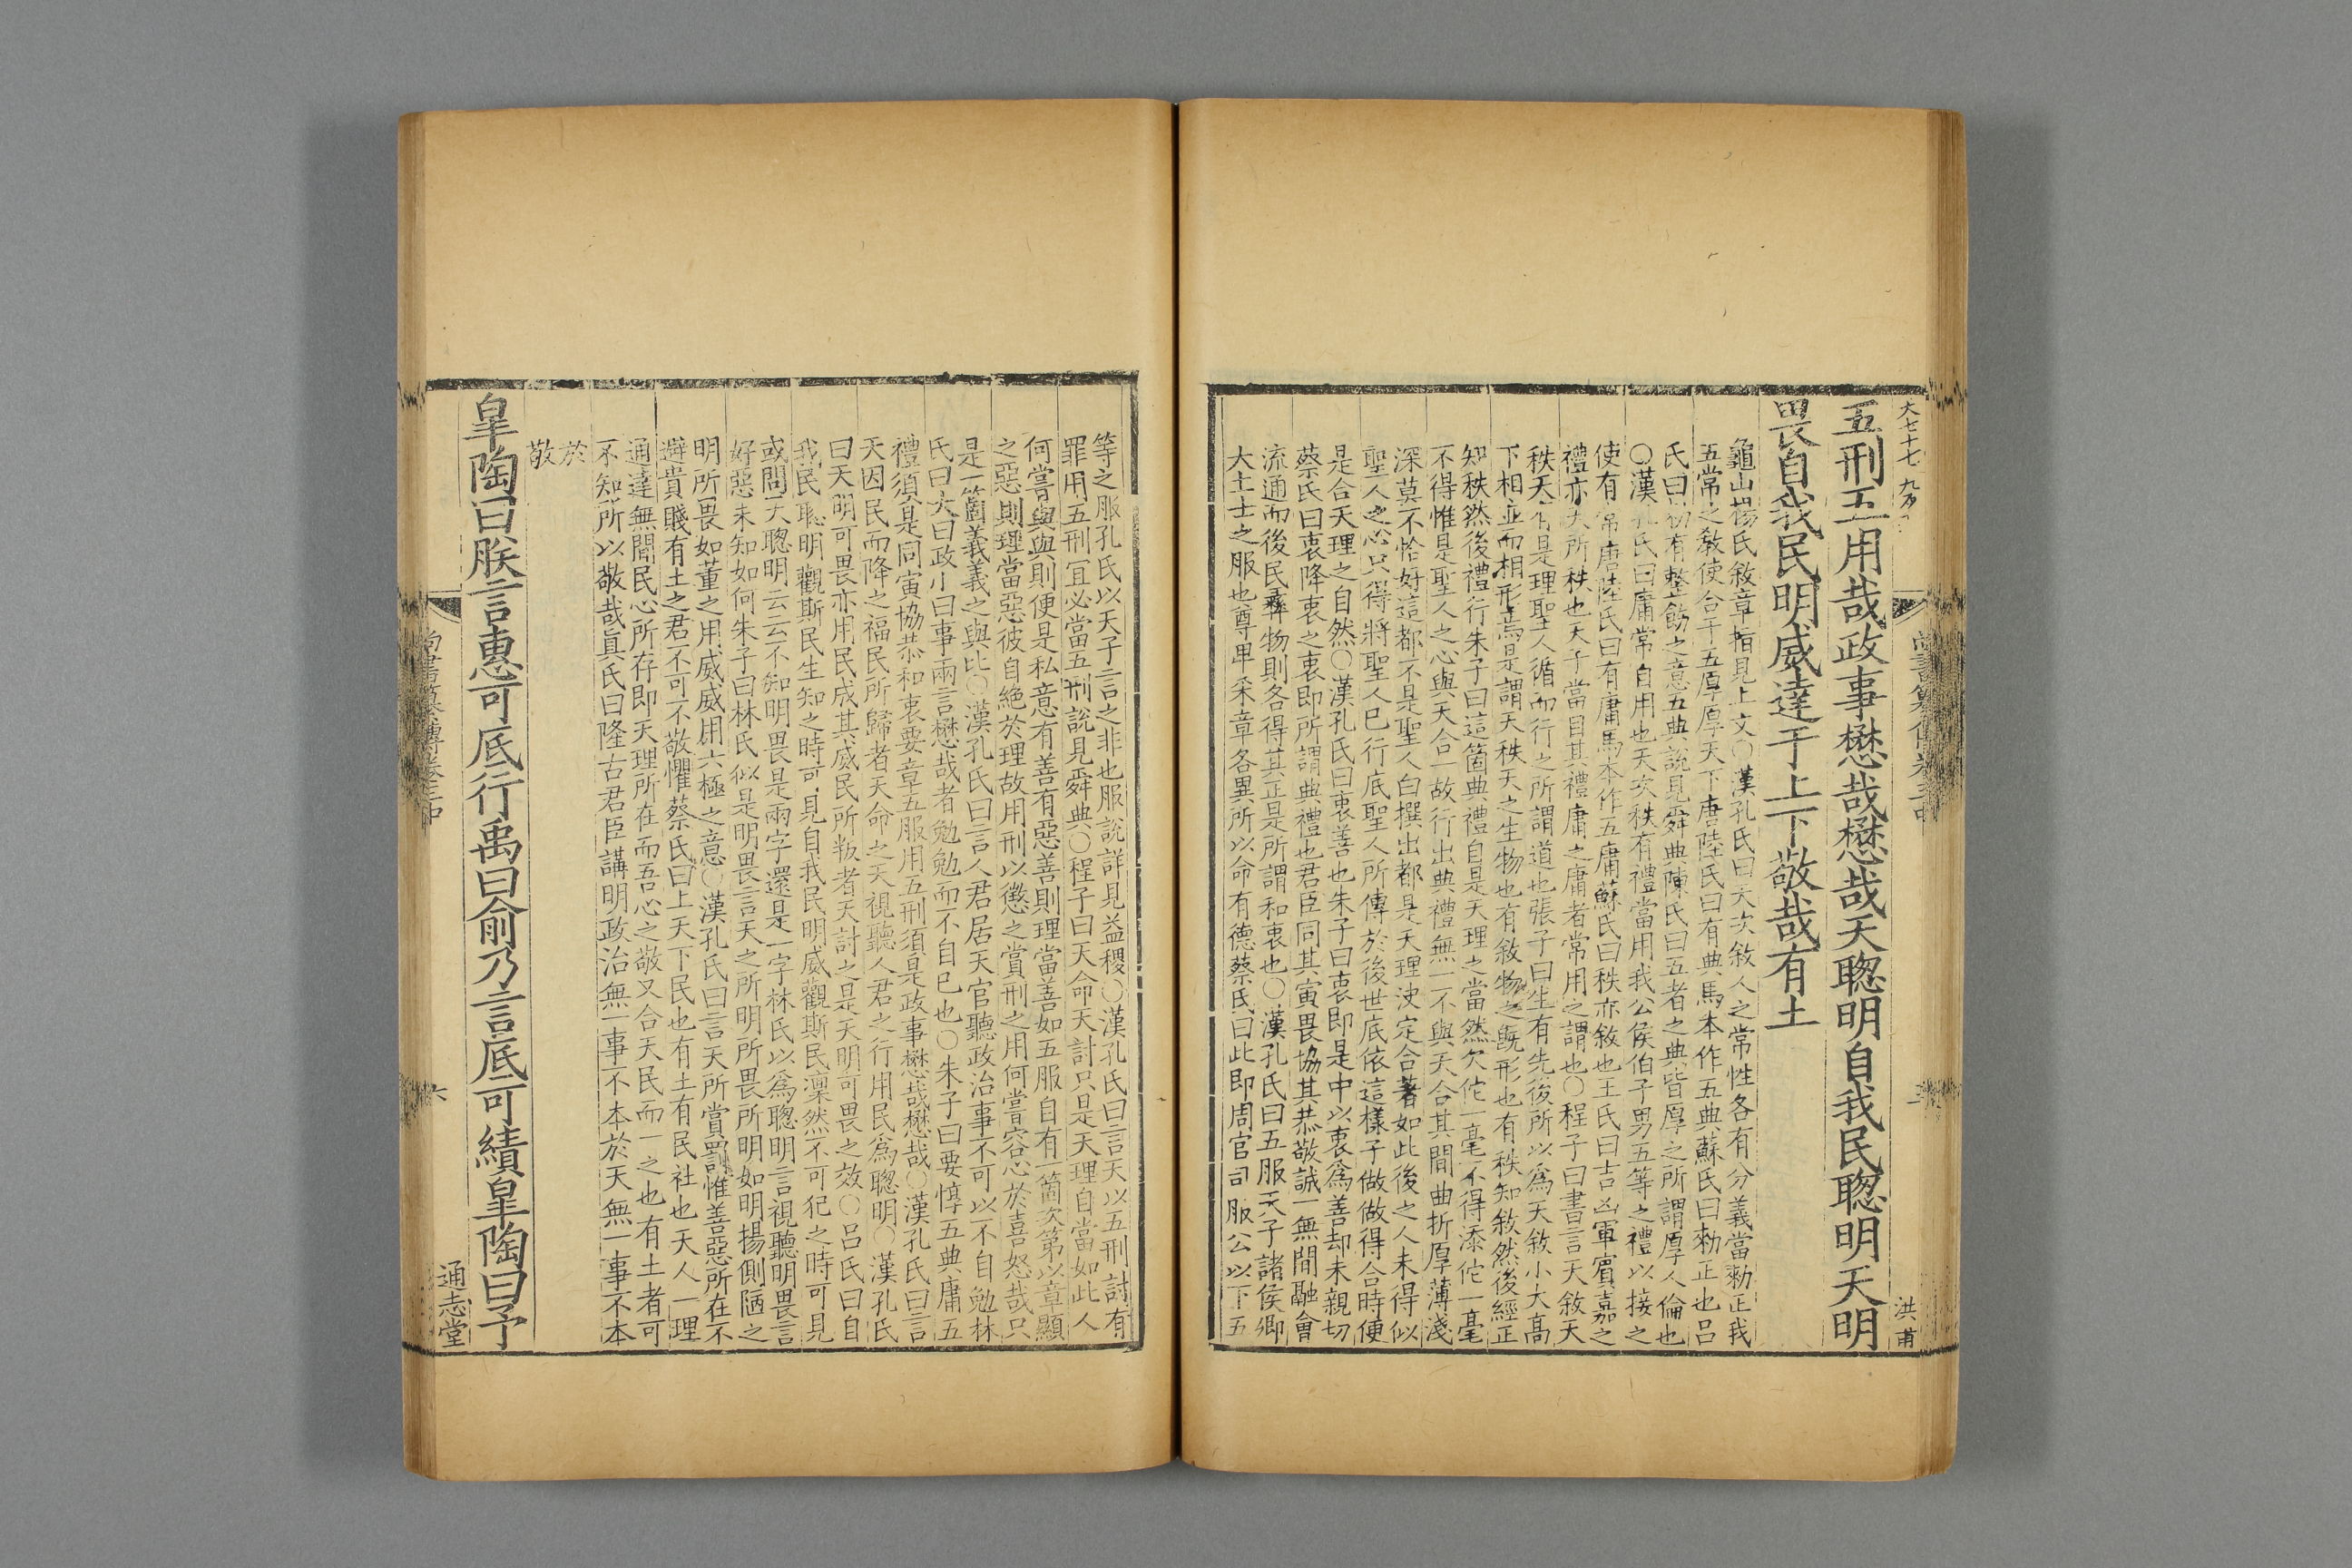 大七十七
洪甫
五刑五用哉政事懋哉懋哉天聦明自我民聦明天明
畏自我民明威達于上下敬哉有土
龜山楊氏敘章指見上文〇漢孔氏曰天次敘人之常性各有分義當勑正我
五常之敎使合于五厚厚天下唐陸氏曰有典馬本作五典蘇氏曰勑正也呂
氏曰勑有整飭之意五典說見舜典陳氏曰五者之典皆厚之所謂厚人倫也
〇漢孔氏曰庸常自用也天次秩有禮當用我公侯伯子男五等之禮以接之
使有常唐陸氏曰有庸馬本作五庸蘇氏曰秩亦敘也王氏曰吉凶軍賓嘉之
禮亦天所秩也天子當自其禮庸之庸者常用之謂也〇程子曰書言天敘天
秩天有是理聖人循而行之所謂道也張子曰生有先後所以爲天敘小大高
下相並而相形焉是謂天秩天之生物也有敘物之旣形也有秩知敘然後經正
知秩然後禮行朱子曰這箇典禮自是天理之當然欠佗一毫不得添佗一毫
不得惟是聖人之心與天合一故行出典禮無一不與天合其間曲折厚薄淺
深莫不恰好這都不是聖人白撰出都是天理決定合著如此後之人未得似
聖人之心只得將聖人已行底聖人所傳於後世底依這樣子做做得合時便
是合天理之自然〇漢孔氏曰衷善也朱子曰衷即是中以衷爲善却未親切
蔡氏曰衷降衷之衷即所謂典禮也君臣同其寅畏協其恭敬誠一無間融會
流通而後民彞物則各得其正是所謂和衷也〇漢孔氏曰五服天子諸侯卿
大夫士之服也尊卑采章各異所以命有德蔡氏曰此即周官司服公以下五
等之服孔氏以天子言之非也服說詳見益稷〇漢孔氏曰言天以五刑討有
罪用五刑宜必當五刑說見舜典〇程子曰天命天討只是天理自當如此人
何嘗與與則便是私意有善有惡善則理當善如五服自有一箇次第以章顯
之惡則理當惡彼自絶於理故用刑以懲之賞刑之用何嘗容心於喜怒哉只
是一箇義義之與比〇漢孔氏曰言人君居天官聽政治事不可以不自勉林
氏曰大曰政小曰事兩言懋哉者勉勉而不自已也〇朱子曰要惇五典庸五
禮須是同寅協恭和衷要章五服用五刑須是政事懋哉懋哉〇漢孔氏曰言
天因民而降之福民所歸者天命之天視聽人君之行用民爲聰明〇漢孔氏
曰天明可畏亦用民成其威民所叛者天討之是天明可畏之效〇呂氏曰自
我民聦明觀斯民生知之時可見自我民明威觀斯民凛然不可犯之時可見
或問天聰明云云不知明畏是兩字還是一字林氏以爲聰明言視聽明畏言
好惡未知如何朱子曰林氏似是明畏言天之所明所畏所明如明揚側陋之
明所畏如董之用威威用六極之意〇漢孔氏曰言天所賞罰惟善惡所在不
避貴賤有土之君不可不敬懼蔡氏曰上天下民也有土有民社也天人一理
通達無間民心所存即天理所在而吾心之敬又合天民而一之也有土者可
不知所以敬哉眞氏曰隆古君臣講明政治無一事不本於天無一事不本
於
敬
皐陶曰朕言惠可底行禹曰俞乃言底可績皐陶曰予
尚書纂傳卷三中
六
通志堂